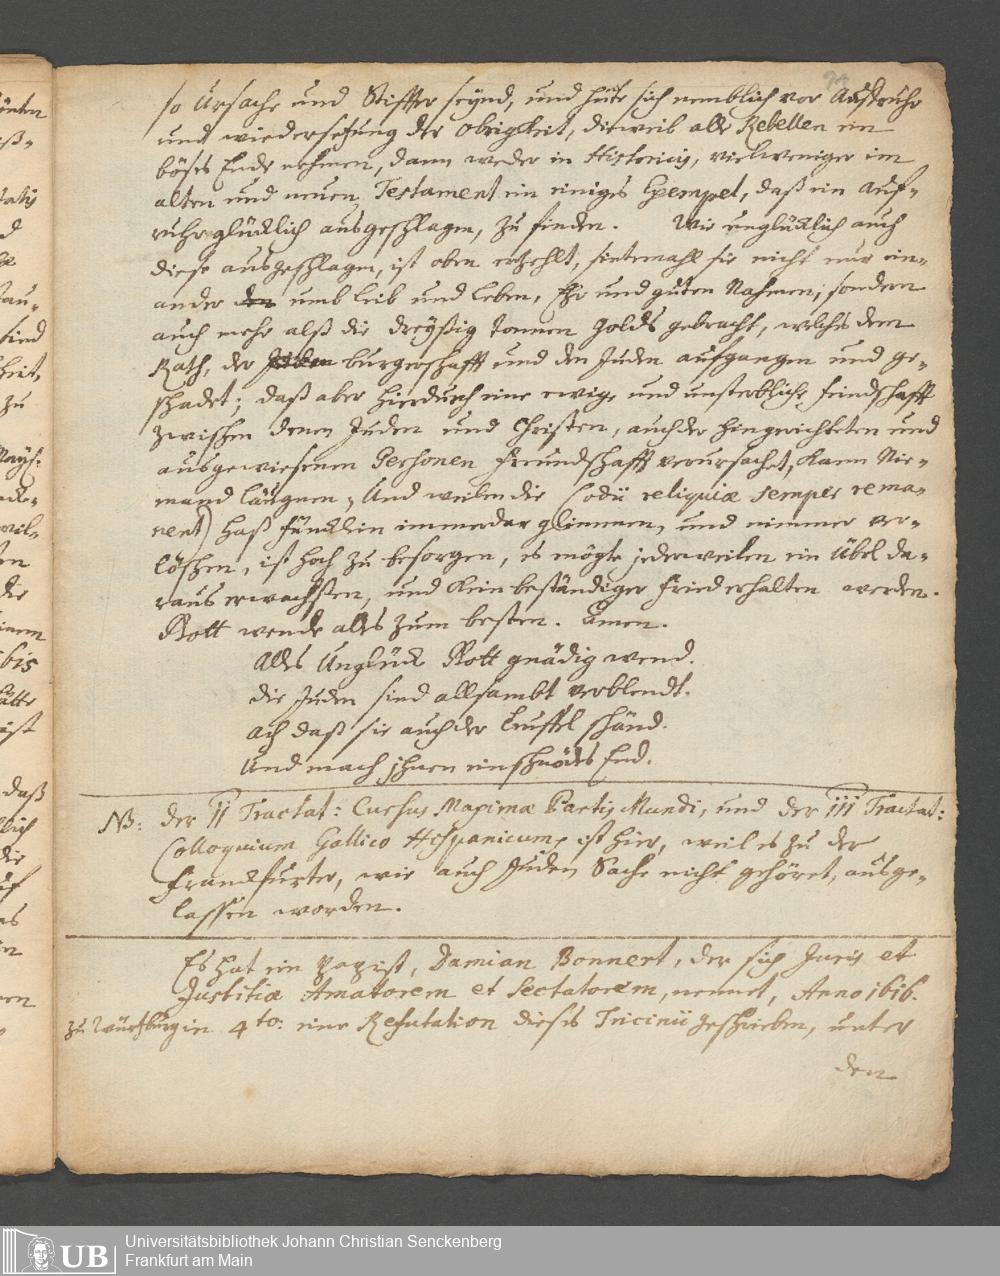 so Ursache und Stiffter seynd, und hüte sich nemblich vor Auffruhr
und wiedersetzung der Obrigkeit, dieweil alle Rebellen ein
böses Ende nehmen, dann weder in Historicis, vielweniger im
alten und neuen Testament ein einiges Exempel, daß ein Auf-
ruhr glücklich ausgeschlagen, zu finden. Wie unglücklich auch
diese ausgeschlagen, ist oben erzehlt, sintemahl sie nicht nur ein-
ander umb leib und leben, Ehr und guten Nahmen, sondern
auch mehr alß die dreyßig tonnen golds gebracht, welches dem
Rath, der burgerschafft und den Juden aufgangen und ge-
schadet; daß aber hierdurch eine ewige und unsterbliche feindschafft
zwischen denen Juden und Christen, auch der hingerichteten und
ausgewiesenen Personen freundschafft verursachet, kann Nie-
mand läugnen; Und weilen die (odii reliquiae semper rema-
nent) haß füncklein immerdar glimmen, und nimmer ver-
löschen, ist hoch zu besorgen, es mögte jederweilen ein Übel da-
raus erwachsten, und kein beständiger fried erhalten werden.
Gott wende alles zum besten. Amen.
Alles Unglück Gott gnädig wend.
die Juden sind allsambt verblendt.
ach daß sie auch der Teuffel schänd.
Und mach jhnen ein schnödes End.
NB: der II Tractat: Cursus Maximae Partis Mundi, und der III Tractat:
Colloquium Gallico Hispanicum, ist hier, weil es zu der
franckfurter, wie auch Juden Sache nicht gehöret, ausge-
lassen worden.
Es hat ein Papist, Damian Bonnert, der sich Juris et
Justitiae Amatorem et Sectatorem, nennet, Anno 1616.
zu Würtzburg in 4to: eine Refutation dieses Tricinii geschrieben, unter
den
Universitätsbibliothek Johann Christian Senckenberg
Frankfurt am Main
UB